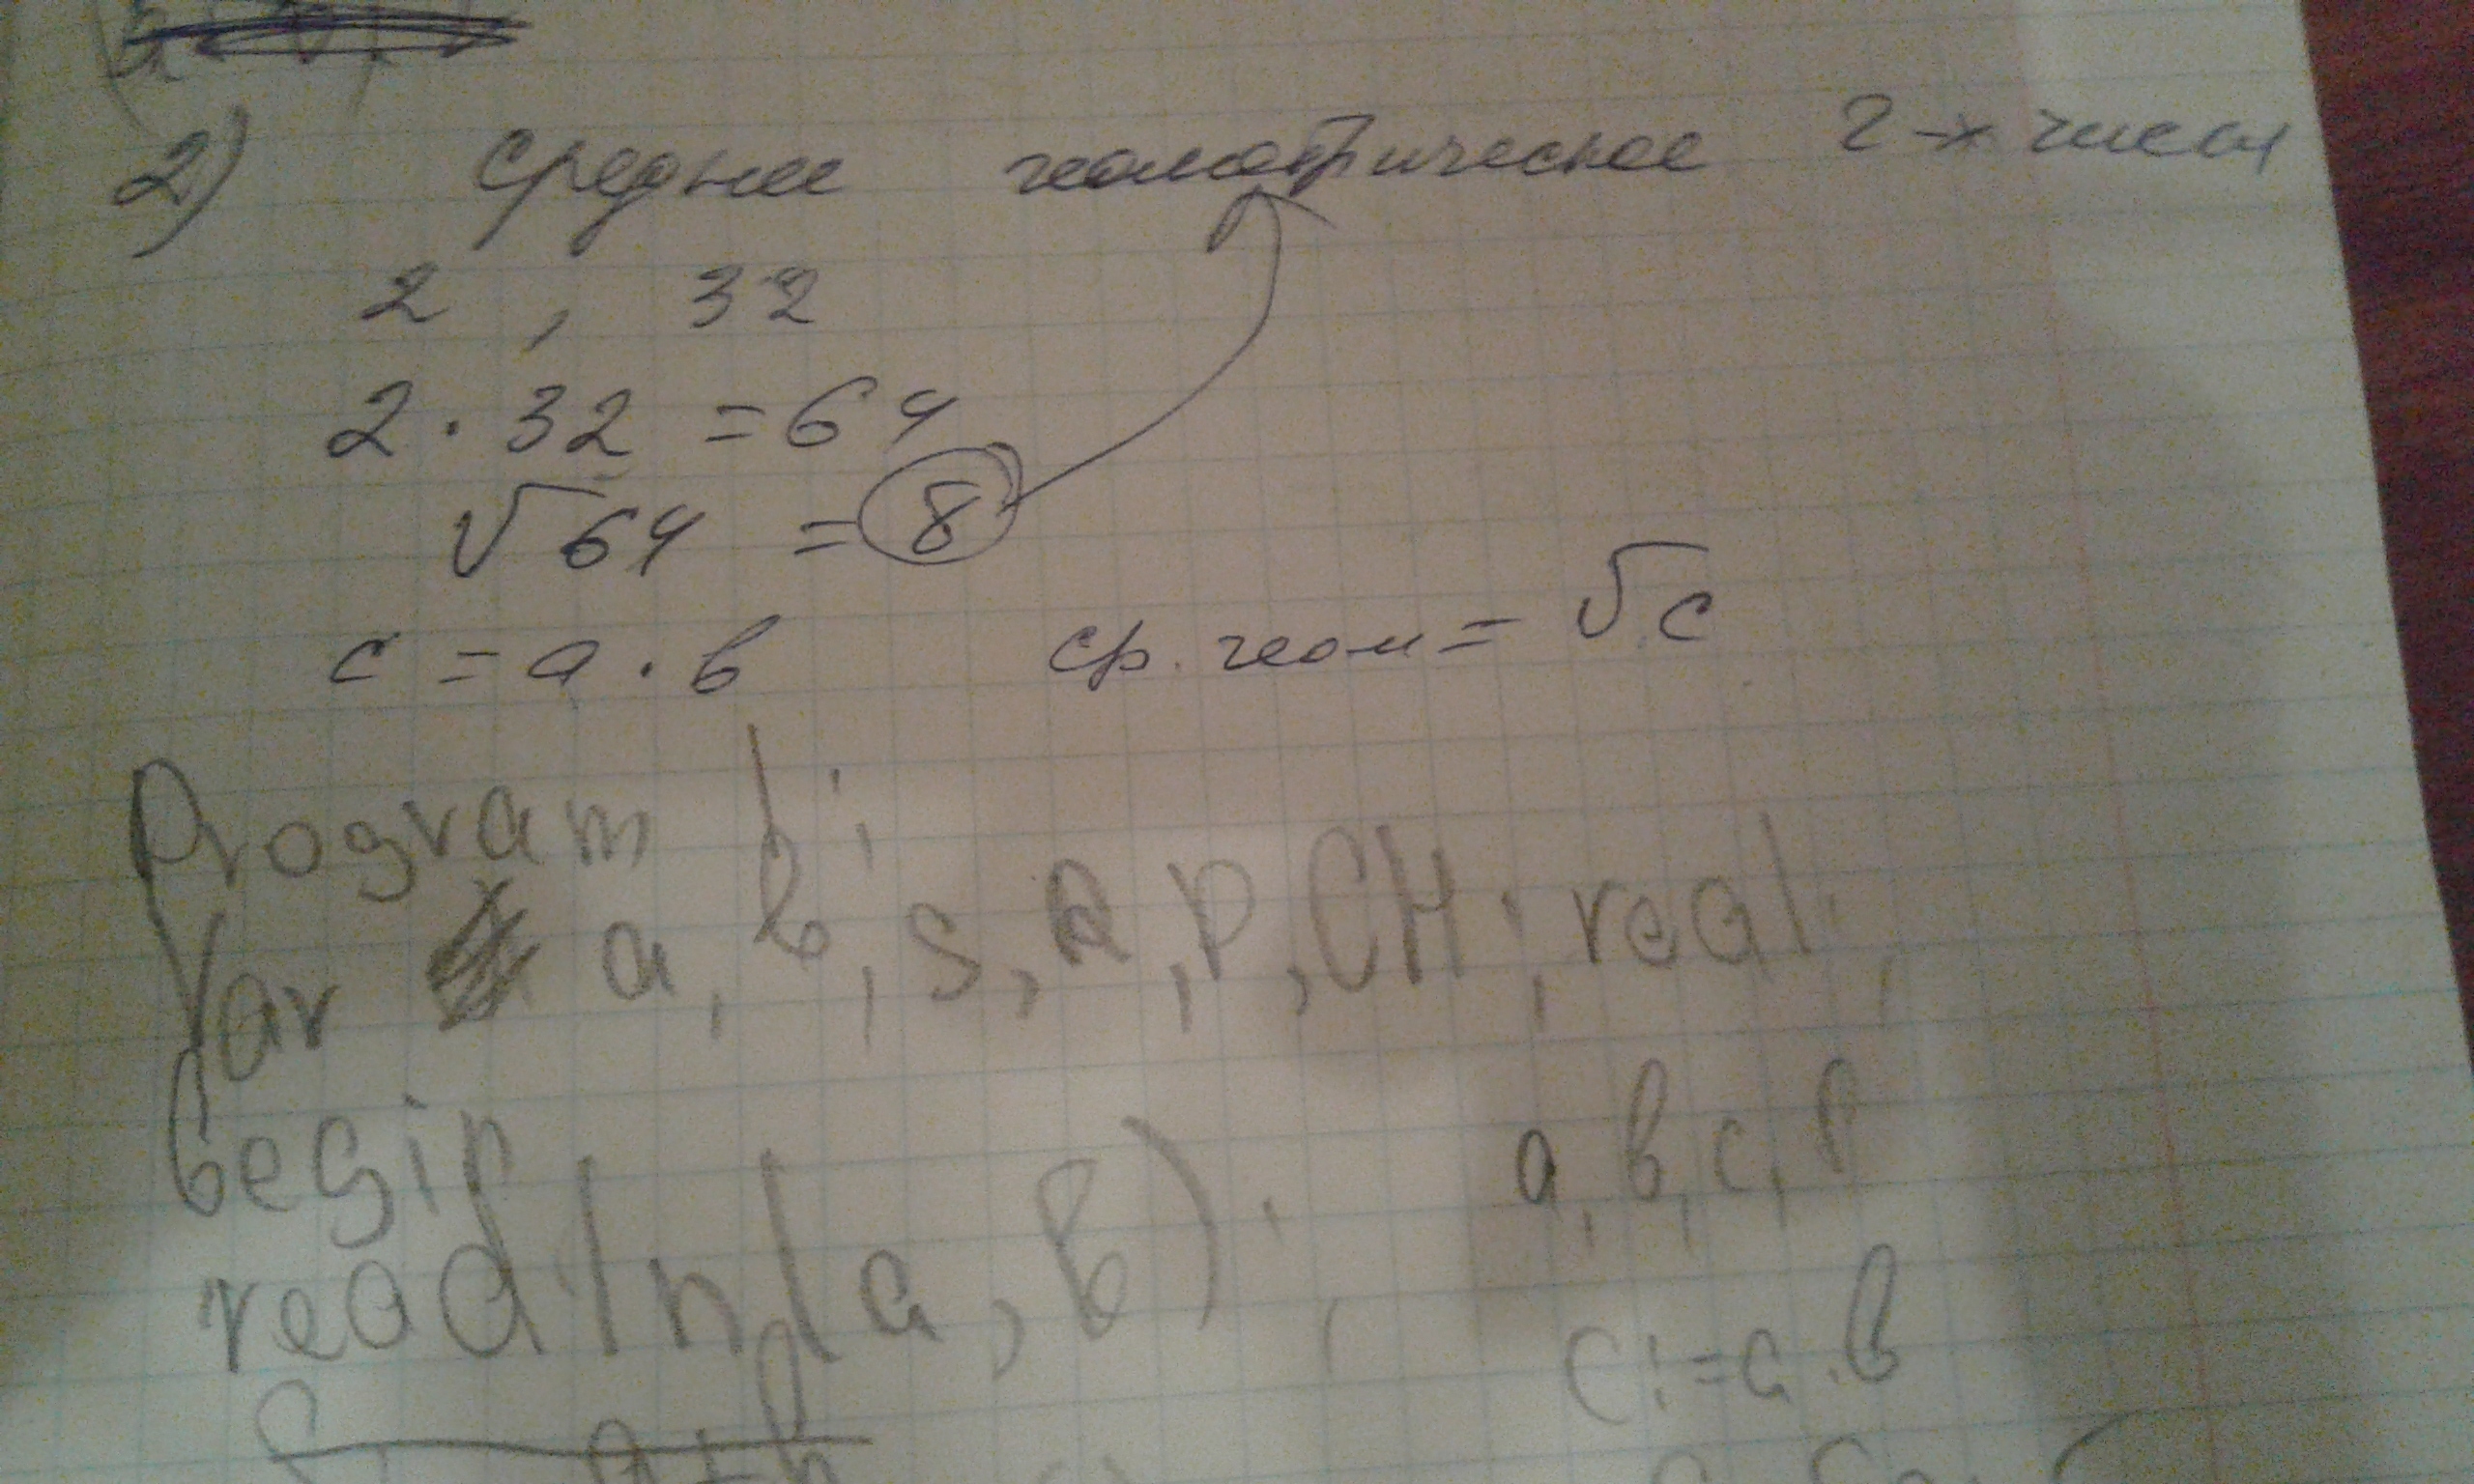 2) Среднее геометрическое 2-х чисел
2 , 32
2 · 32 = 64
√64 = 8
c = a · b ср. геом = √c
Program b;
Var a, b, s, R, P, CH: real;
begin
readln(a, b);
a, b, c, P
c:=a·b
a+b